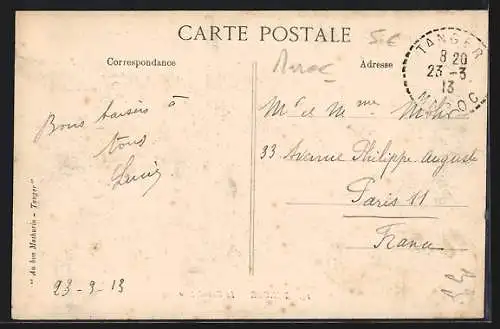 CARTE POSTALE
5.€
Maroc
Correspondance
Adresse
TANGER
8 20
23 -3
13
MAROC
Bons baisers à
tous
Mr et Mme
33 Avenue Philippe Auguste
Paris 11
France
23-3 13
"Au bon Mathurin - Tanger"